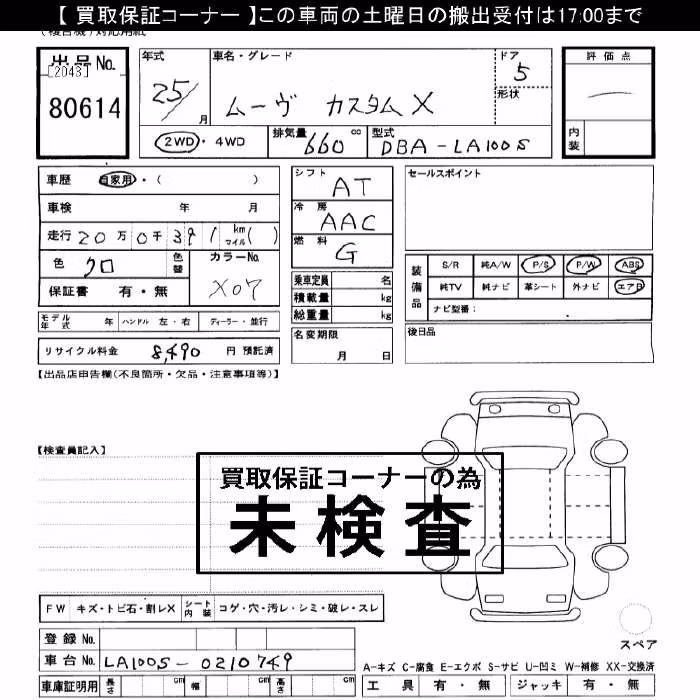 【 買取保証コーナー 】この車両の土曜日の搬出受付は17:00まで
出品No.
[2043]
80614
年式 車名・グレード ドア
25/ 月 ムーヴ カスタムX 5
形状
2WD・4WD 排気量 660 cc 型式 DBA-LA100S
評価点
内装
車歴 自家用・( )
車検 年 月
走行 20万0千391 km マイル( )
色 クロ 色替 カラーNo. X07
保証書 有・無
シフト AT
冷房 AAC
燃料 G
乗車定員 名
積載量 kg
総重量 kg
セールスポイント
装備品 S/R 純A/W P/S P/W ABS
純TV 純ナビ 革シート 外ナビ エアB
ナビ型番:
モデル年式 年 ハンドル 左・右 ディーラー・並行
名変期限 月 日
後日品
リサイクル料金 8,490 円 預託済
【出品店申告欄(不良箇所・欠品・注意事項等)】
【検査員記入】
買取保証コーナーの為
未検査
FW キズ・トビ石・割レX シート内装 コゲ・穴・汚レ・シミ・破レ・スレ
登録No.
車台No. LA100S-0210749
車庫証明用 長さ cm 幅 cm 高さ cm
スペア
A-キズ C-腐食 E-エクボ S-サビ U-凹ミ W-補修 XX-交換済
工具 有・無 ジャッキ 有・無